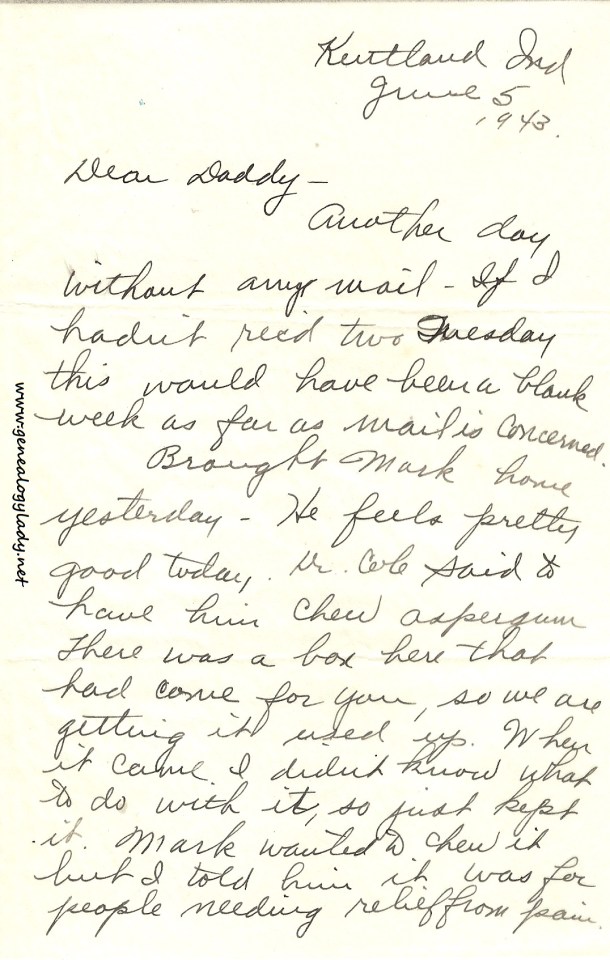 Kentland Ind
June 5
1943.
Dear Daddy -
Another day
without any mail - If I
hadn't rec'd two Tuesday
this would have been a blank
week as far as mail is concerned.
Brought Mark home
yesterday - He feels pretty
good today. Dr. Cole said to
have him chew aspergum
There was a box here that
had come for you, so we are
getting it used up. When
it came I didn't know what
to do with it, so just kept
it. Mark wanted to chew it
but I told him it was for
people needing relief from pain.
www.genealogylady.net